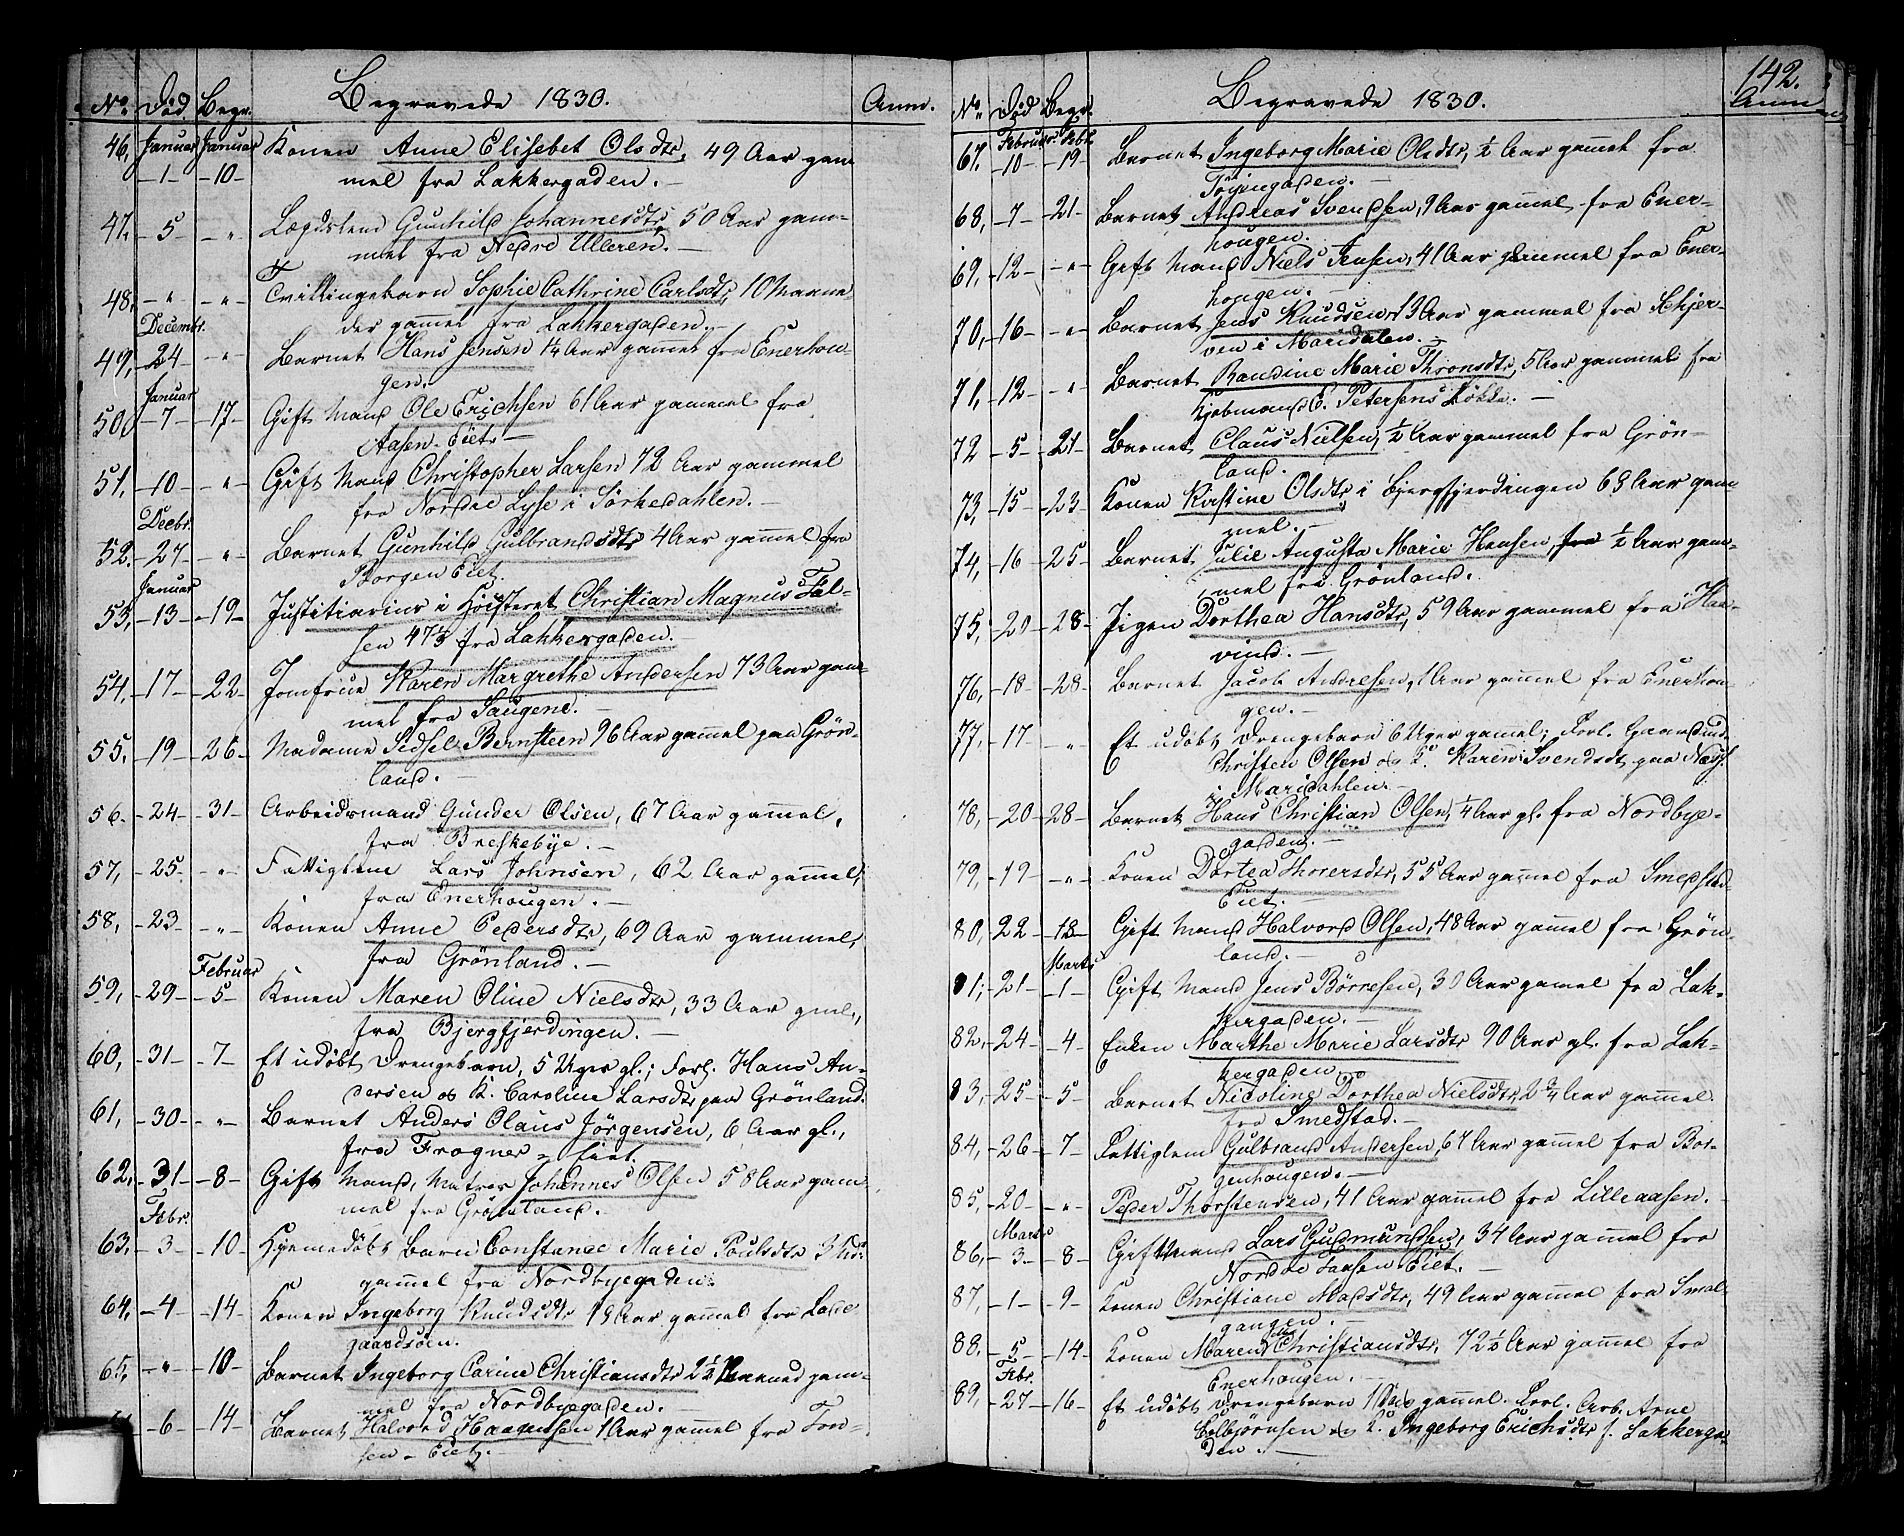 No. Död. Begr. Begravede 1830. Anm.
46, Januar Januar Konen Anne Elisebet Olsdtr, 49 Aar gam
-1- -10- mel fra Lakkergaden. -
47, -5- -"- Lægdslem Gunhild Johannesdtr, 50 Aar gam-
mel fra Nedre Ulleren. -
48, -"- -"- Tvillingebarn Sophie Cathrine Carlsdtr, 10 Maane-
der gam̄el fra Lakkergaden. -
Decembr.
49, -24 -"- Barnet Hans Jensen 1/4 Aar gam̄el fra Enerhou-
gen.
Januar
50, -7- -17- Gift Mand Ole Erichsen 61 Aar gammel fra
Aasen Eiet -
51, -10- -"- Gift Mand Christopher Larsen 72 Aar gammel
fra Nordre Lyse i Sörkedahlen. -
Decbr.
52. -27- -"- Barnet Gunhild Gulbrandsdtr 4 Aar gam̄el fra
Borgen Eiet.
Januar
53, -13- -19- Justitiarius i Höisteret Christian Magnus Fal-
sen 47½ fra Lakkergaden.
54, -17- -22- Jomfrue Karen Margrethe Andersen 73 Aar gam
mel fra Saugene. -
55, -19- -26- Madame Sidsel Bernsteen 96 Aar gam̄el paa Grön-
land. -
56. -24- -31- Arbeidsmand Gunder Olsen, 67 Aar gam̄el,
fra Breskebye. -
57, -25. -"- Fattiglem Lars Johnsen, 62 Aar gam̄el,
fra Enerhougen. -
58, -23- -"- Konen Anne Pedersdtr, 69 Aar gammel,
fra Grönland. -
Februar
59, -29- -5- Konen Maren Oline Nielsdtr, 33 Aar gml.,
fra Bjergfjerdingen. -
60, -31- -7- Et udöbt Drengebarn, 5 Uger gl.; Forl. Hans An-
dersen og K. Caroline Larsdtr paa Grönland.
61, -30- -"- Barnet Anders Olaus Jörgensen, 6 Aar gl.,
fra Frogner-Eiet.
62, -31- -8- Gift Mand, Matros Johannes Olsen 58 Aar gam
mel fra Grönland. -
Febr.
63, -3- -10- Hjemedöbt Barn Constance Marie Poulsdtr
gam̄el fra Nordbyegaden.
64, -4- -14- Konen Ingeborg Knudsdtr Aar gam̄el fra Lade
gaardsöen.
65, -"- -10- Barnet Ingeborg Carine Christiansdtr 2½ Maaned gam-
mel fra Nordbyegaden. -
-6- -14- Barnet Halvord Haagensen 1 Aar gam̄el fra Ton-
sen-Eiet.
142.
No. Död Begr. Begravede 1830. Anm
67. Februar Febr. Barnet Ingeborg Marie Olsdtr, ½ Aar gam̄el fra
-10- -19- Töiengaden. -
68, -7- -21- Barnet Andreas Svendsen, 9 Aar gam̄el fra Ener-
hougen.
69, -12- -"- Gift Mand Niels Jensen, 41 Aar gammel fra Ener-
hougen. -
70, -16- -"- Barnet Jens Knudsen, Aar gammel fra Skjer-
ven i Maridalen. -
71, -12- -"- Barnet Randine Marie Thronsdtr, 5 Aar gammel fra
Kjöbmand E. Petersens Lökke. -
72 -5- -21- Barnet Claus Nielsen, ½ Aar gammel fra Grön-
land.
73, -15- -23- Konen Kirstine Olsdtr i Bjergfjerdingen 63 Aar gam
mel. -
74, -16 -25- Barnet Julie Augusta Marie Hansen, fra ½ Aar gam-
mel fra Grönland.
75, -20- -28- Pigen Dorthea Hansdtr, 59 Aar gammel fra Haa-
vind. -
76, -18- -28- Barnet Jacob Andresen, 1 Aar gammel fra Enerhou-
gen. -
77, -17- " Et udöbt Drengebarn 6 Uger gam̄el; Forl. Gaardmd.
Christen Olsen og K. Karen Svendsdtr paa
i Maridahlen. -
78, -20- 28- Barnet Hans Christian Olsen, ¼ Aar gl. fra Nordbye-
gaden. -
79, -19 -"- Konen Dortea Thorersdtr, 55 Aar gam̄el fra Smedstad
Eiet. -
80, -22 -18- Gift Mand Halvord Olsen, 48 Aar gam̄el fra Grön-
land. -
Marts
81, -21- -1- Gift Mand Jens Börresen, 30 Aar gam̄el fra Lak-
kergaden. -
82, -24 -4- Enken Marthe Marie Larsdtr 90 Aar gl. fra Lak-
kergaden.
83, -25- -5- Barnet Nicoline Dorthea Nielsdtr, 2¾ Aar gam̄el
fra Smedstad. -
84, -26 -7- Fattiglem Gulbrand Andersen, 67 Aar gam̄el fra Bor-
genhougen. -
85, -20- -"- Peder Thorstensen, 41 Aar gam̄el fra Lilleaasen. -
Marts
86, -3- -8- Gift Mand Lars Gudmundsen, 34 Aar gam̄el fra
Nordre Eiet. -
87, -1- -9- Konen Christiane Madsdtr, 49 Aar gammel fra Smal-
gangen. -
88, -5- -14- Konen Maren Christiansdtr, 72½ Aar gam̄el fra
Enerhougen. -
Febr.
89, -27 -16- Et udöbt Drengebarn 1 Dag gam̄el. Forl. Arb. Arne
Colbjörnsen og K. Ingeborg Erichsdtr f. Lakkerga-
den. -